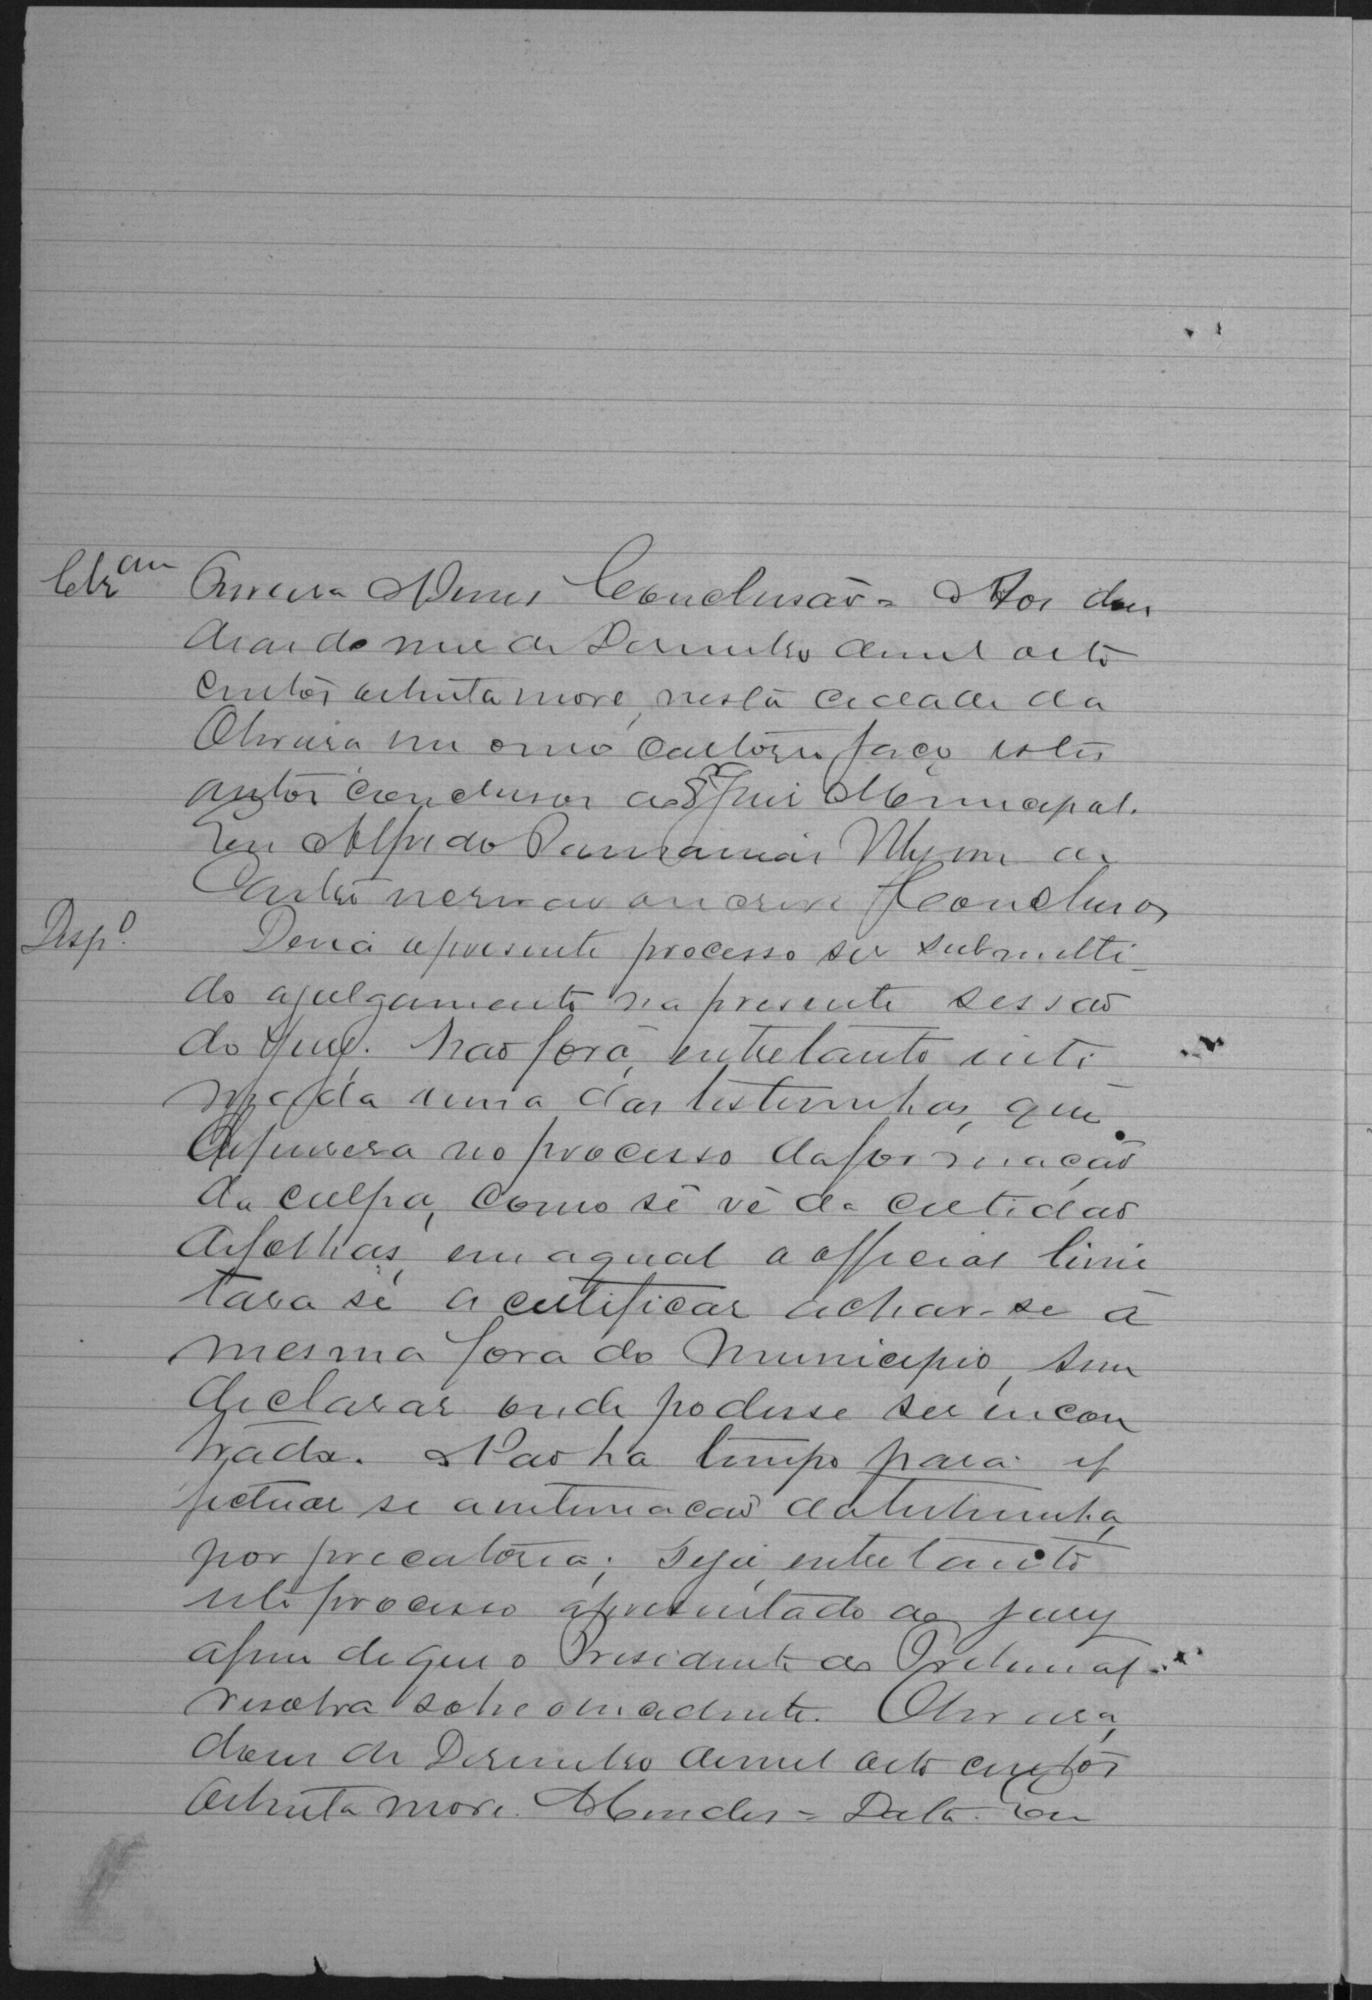 Clzam
Conclusão = Aos dous
dias do mez de Dezembro de mil oito
centos oitenta e nove, nesta cidade da
Oliveira em o meu cartorio faço estes
autos conclusos ao Sr Juiz Municipal.
Eu Alfredo
Castro escrivão escrevi Conclusos
Despo.
Devia o presente processo ser submetti-
do a julgamento na presente sessão
do Jury. Não fora, entretanto inti
mada uma das testimunhas, que
depuzera no processo da formação
da culpa, como se vê da certidão
de folhas, em a qual o official limi
tara se a certificar achar-se a
mesma fora do Municipio, sem
declarar onde podesse ser encon
trada. Não ha tempo para ef
fectuar se a intimação da testimunha,
por precatoria; seja, entretanto
este processo apresentado ao jury
afim de que o Presidente do Tribunal
resolva sobre o incidente. Oliveira,
dous de Dezembro de mil oito centos
oitenta e nove. Mendes = Data. Em